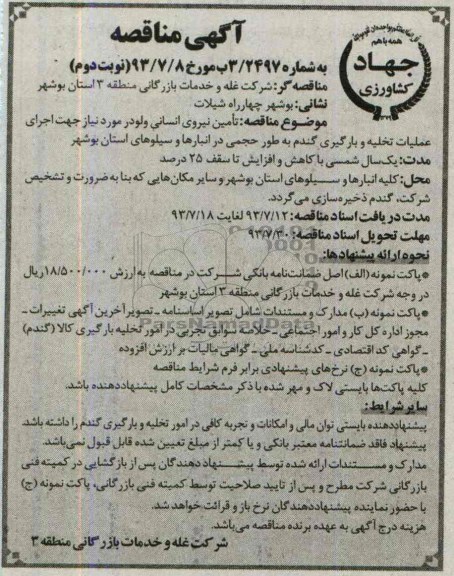 آگهی مناقصه
همه با هم
جهاد
کشاورزی
به شماره ۳/۲۴۹۷ب مورخ ۹۳/۷/۸ (نوبت دوم)
مناقصه گر: شرکت غله و خدمات بازرگانی منطقه ۳ استان بوشهر
نشانی: بوشهر چهارراه شیلات
موضوع مناقصه: تأمین نیروی انسانی ولودر مورد نیاز جهت اجرای
عملیات تخلیه و بارگیری گندم به طور حجمی در انبارها و سیلوهای استان بوشهر
مدت: یک‌سال شمسی با کاهش و افزایش تا سقف ۲۵ درصد
محل: کلیه انبارها و سیلوهای استان بوشهر و سایر مکان‌هایی که بنا به ضرورت و تشخیص
شرکت، گندم ذخیره‌سازی می‌گردد.
مدت دریافت اسناد مناقصه: ۹۳/۷/۱۲ لغایت ۹۳/۷/۱۸
مهلت تحویل اسناد مناقصه: ۹۳/۷/۳۰
نحوه ارائه پیشنهادها:
*پاکت نمونه (الف) اصل ضمانت‌نامه بانکی شرکت در مناقصه به ارزش ۱۸/۵۰۰/۰۰۰ریال
در وجه شرکت غله و خدمات بازرگانی منطقه ۳ استان بوشهر
*پاکت نمونه (ب) مدارک و مستندات شامل تصویر اساسنامه ـ تصویر آخرین آگهی تغییرات ـ
مجوز اداره کل کار و امور اجتماعی ـ خلاصه سوابق تجربی در امور تخلیه بارگیری کالا (گندم)
ـ گواهی کد اقتصادی ـ کدشناسه ملی ـ گواهی مالیات بر ارزش افزوده
*پاکت نمونه (ج) نرخ‌های پیشنهادی برابر فرم شرایط مناقصه
کلیه پاکت‌ها بایستی لاک و مهر شده با ذکر مشخصات کامل پیشنهاددهنده باشد.
سایر شرایط:
پیشنهاددهنده بایستی توان مالی و امکانات و تجربه کافی در امور تخلیه و بارگیری گندم را داشته باشد.
پیشنهاد فاقد ضمانتنامه معتبر بانکی و یا کمتر از مبلغ تعیین شده قابل قبول نمی‌باشد.
مدارک و مستندات ارائه شده توسط پیشنهاد دهندگان پس از بازگشایی در کمیته فنی
بازرگانی شرکت مطرح و پس از تایید صلاحیت توسط کمیته فنی بازرگانی، پاکت نمونه (ج)
با حضور نماینده پیشنهاددهندگان نرخ باز و قرائت خواهد شد.
هزینه درج آگهی به عهده برنده مناقصه می‌باشد.
شرکت غله و خدمات بازرگانی منطقه ۳